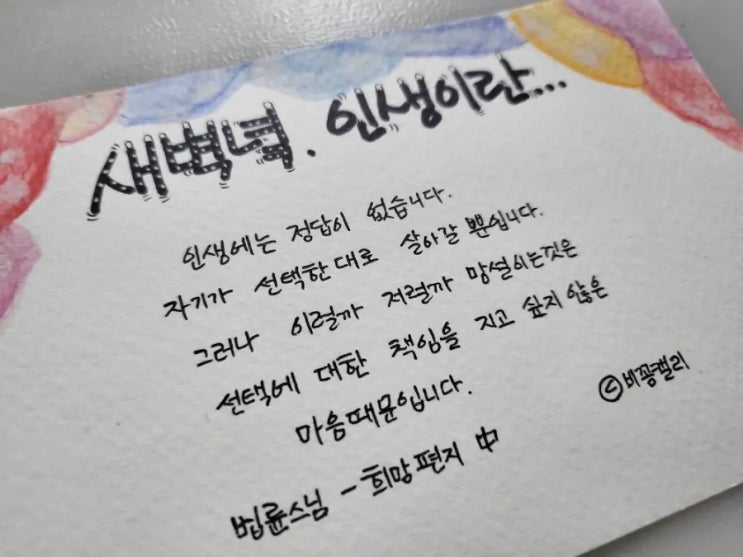 새벽녘. 인생이란...
인생에는 정답이 없습니다.
자기가 선택한대로 살아갈 뿐입니다.
그러나 이럴까 저럴까 망설이는것은
선택에 대한 책임을 지고 싶지않은
마음때문입니다.
ⓒ비꽁캘리
법륜스님 - 희망편지 中